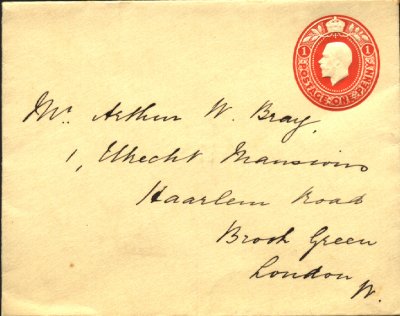 1 1
POSTAGE ONE PENNY
Mr. Arthur W. Bray,
1, Utrecht Mansions
Haarlem Road
Brook Green
London
W.